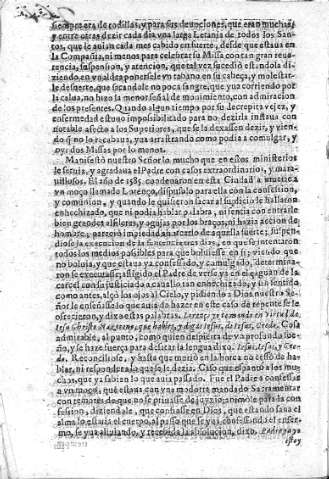 siempre era de rodillas, y para sus deuociones, que eran muchas,
y entre otras dezir cada dia vna larga Letania de todos los San-
tos, que le auian cada mes cabido en suerte, desde que estaua en
la Compañia, ni menos para celebrar su Missa con tan grande
reuerencia, suspension, y atencion, que tal vez sucedió estandola di-
ziendo en vn aldea ponersele vn tabano en su cabeça, y molestar-
le de suerte, que sacandole no poca sangre, que yua corriendo por
la calua, no hizo la menor señal de mouimiento, con admiracion
de los presentes. Quando algun tiempo por su decrepita vejez, y
enfermedad estuuo impossibilitado para no dezirla instaua con
notable afecto a los Superiores, que se la dexassen dezir, y vien-
do que no lo recabaua, yua arrastrando como podia a comulgar, y
oyr dos Missas por lo menos.
Manifestó nuestro Señor lo mucho que en estos ministerios
le seruia, y agradaua el Padre con casos extraordinarios, y mara-
uillosos. El año de 1585 condenaron en esta Ciudad a muerte a
vn moço llamado Lorenço, dispusolo para ella con la confession,
y comunion, y quando le quisieron sacar al suplicio le hallaron
enhechizado, que ni podia hablar palabra, ni sentia con entrarle
bien grandes alfileres, y agujas por los braços, ni hazia accion de
hombre, pareció impiedad ahorcarlo de aquella suerte; suspen-
diose la execucion de la sentencia tres dias, en que se intentaron
todos los medios possibles para que boluiesse en si; viendo que
no boluia, y que estaua ya confessado, y comulgado, determina-
ron se executasse; afligido el Padre de verse ya en el çaguan de la
carcel con su justiciado a cauallo tan enhechizado, y sin sentido
como antes, alçó los ojos al Cielo, y pidiendo a Dios nuestro Se-
ñor le enseñasse lo que auia de hazer en este caso de repente se le
ofrecieron, y dixo estas palabras. Lorenço yo te mando en virtud de
Iesu Christo Nazareno, que hables, y digas Iesus, de Iesus, Credo. Cosa
admirable, al punto, como quien despierta de vn profundo sue-
ño, y se haze fuerça para desatar la lengua dixo. Iesus, Iesus, y Cre-
do. Reconciliose, y hasta que murió en la horca no cessó de ha-
blar, ni responder a lo que se le dezia. Caso que espantó a los mu-
chos, que ya sabian lo que auia passado. Fue el Padre a confessar
a vn moço, que estaua con vna modorra mandado Sacramentar
con remates de que no se priuasse de juyzio; animóle para la con-
fession, diziendole, que confiasse en Dios, que estando sana el
alma lo estaria el cuerpo, al passo que se yua confessando el enfer-
mo, se yua aliuiando, y recebida la absolucion, dixo. Padre ya yo
estoy